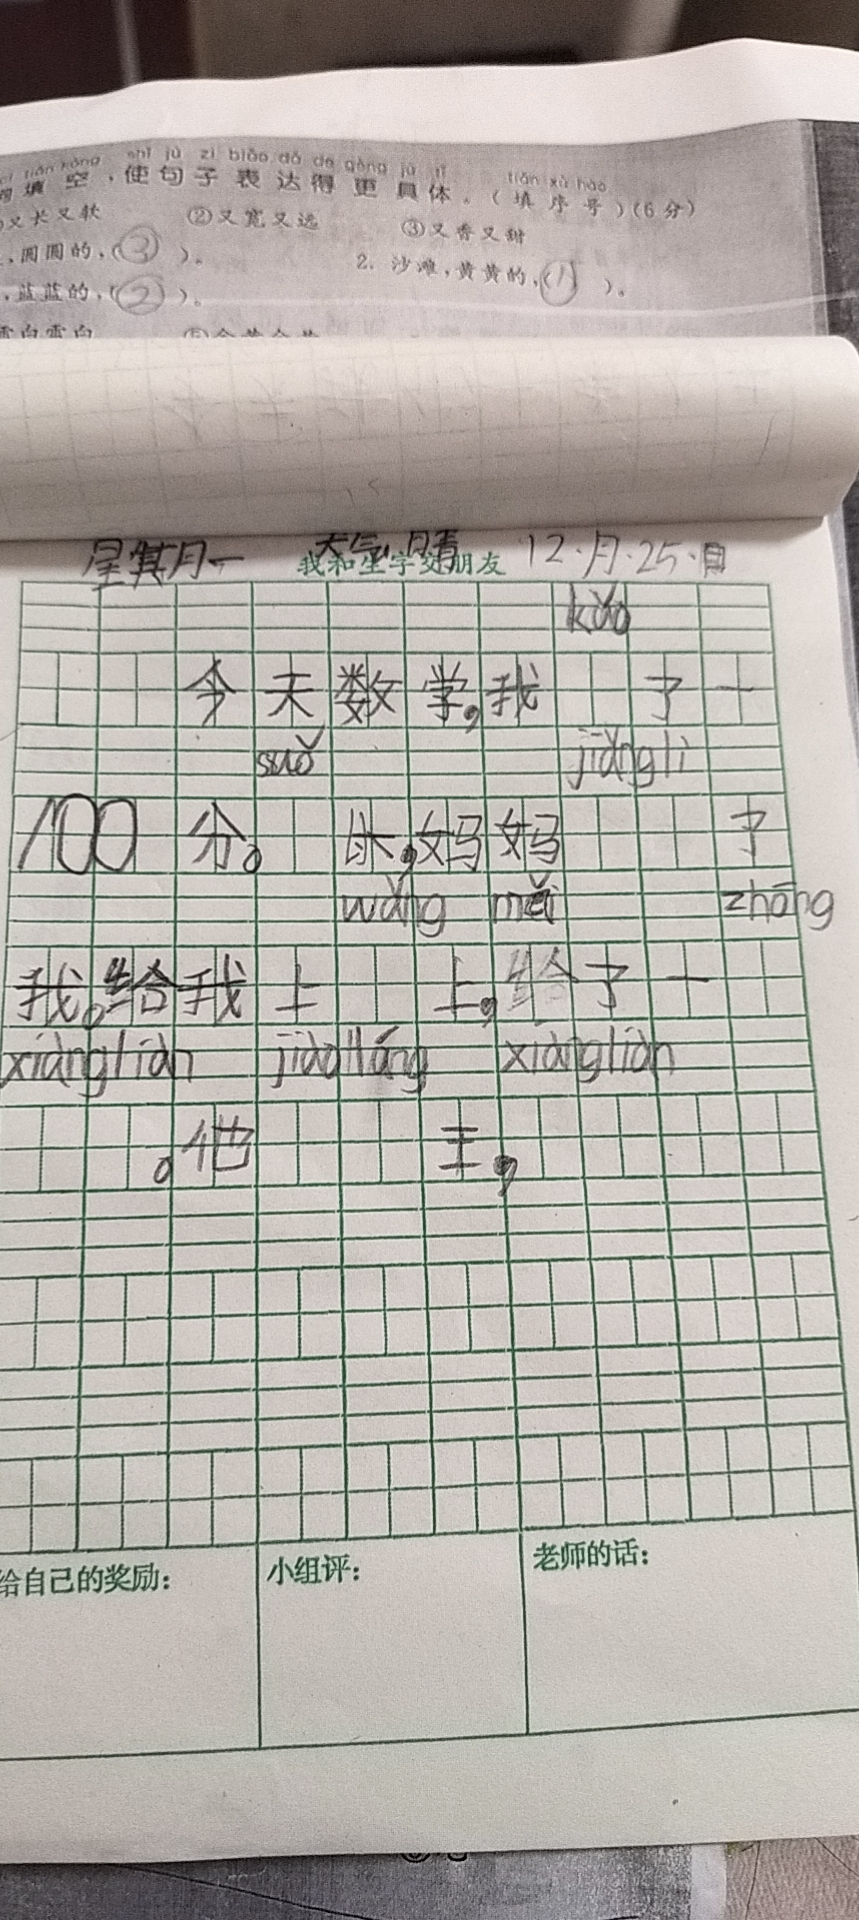 shì jù zi biǎo dá de gèng jù tǐ tián xù hào
填空,使句子表达得更具体。(填序号)(6分)
又长又软 ②又宽又远 ③又香又甜
,圆圆的,(③)。 2. 沙滩,黄黄的,(①)。
,蓝蓝的,(②)。
雪白雪白
星其月一 天气晴 12·月·25·日
我和生字交朋友
kǎo
今天数学,我 了一
suǒ jiǎnglì
100 分。 以,妈妈 了
wǎng mǎi zhāng
我。给我上 上,给了一
xiàngliàn jiàoHáng xiàngliàn
。他 王,
给自己的奖励: 小组评: 老师的话: